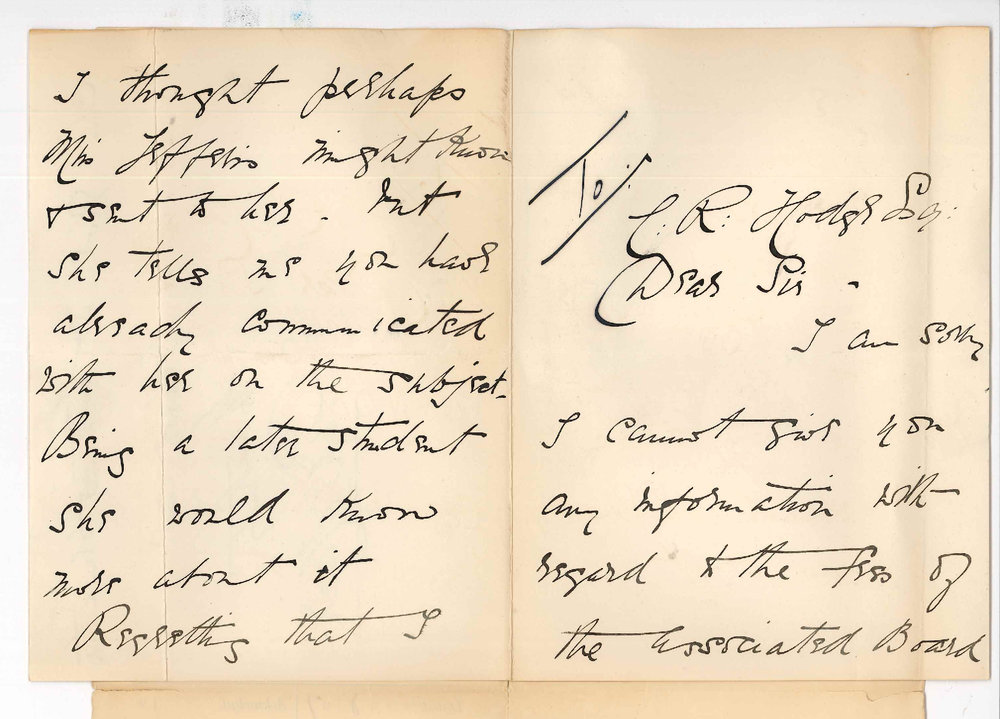 To/:
C. R: Hodge Esq:
Dear Sir -
I am sorry
I cannot give you
any information with
regard to the fees of
the Associated Board
I thought perhaps
Miss Jefferis might know
& sent to her. But
she tells me you have
already communicated
with her on the subject.
Being a later student
she would know
more about it
Regretting that I